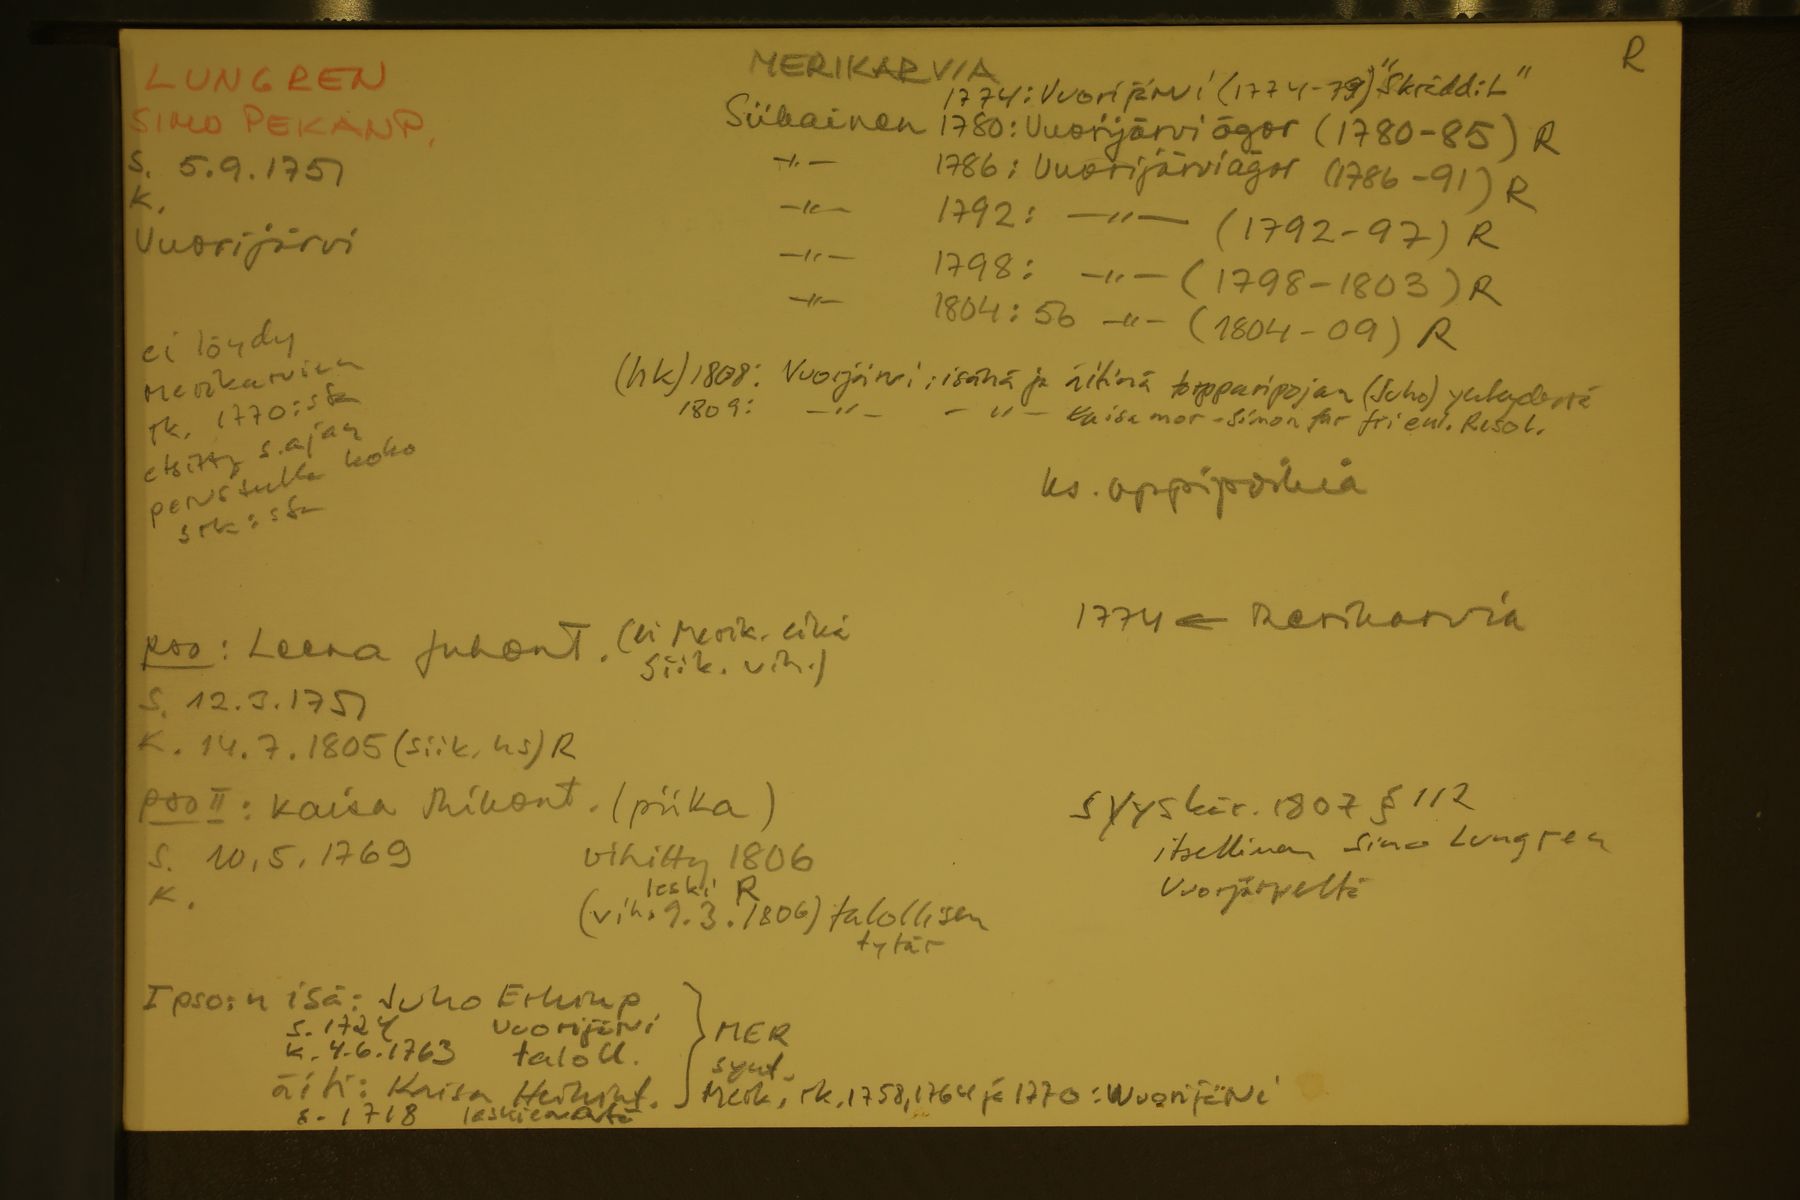 LUNGREN
SIMO PEKANP.
s. 5.9.1751
k.
Vuorijärvi
MERIKARVIA
R
1774: Vuorijärvi (1774-79) "Skrädd:L"
Siikainen 1780: Vuorijärvi ägor (1780-85) R
-"- 1786: Vuorijärvi ägor (1786-91) R
-"- 1792: -"- (1792-97) R
-"- 1798: -"- (1798-1803) R
-"- 1804: 56 -"- (1804-09) R
(hk) 1808: Vuorijärvi; isänä ja äitinä torpparipojan (Juho) yhteydestä
1809: -"- -"- Kaisa mor - Simon far
ks. oppipoikia
ei löydy
Merikarvian
rk. 1770:stä
etsitty s.ajan
perusteella koko
srk:sta
1774 ← Merikarvia
pso: Leena Juhont. (ei Merik. eikä
Siik. vih.)
s. 12.3.1751
k. 14.7.1805 (siik. hs) R
pso II: Kaisa Mikont. (piika)
s. 10.5.1769 vihitty 1806
k.
leski R
(vih. 9.3.1806) talollisen
tytär
syyskär. 1807 § 112
itsellinen Simo Lungren
Vuorijärveltä
I pso:n isä: Juho Erkinp
s. 1724 Vuorijärvi
k. 4.6.1763 taloll.
äiti: Kaisa Heikint.
s. 1718 leskiemäntä
MER
synt.
Merik. rk. 1758, 1764 ja 1770: Wuorijärvi